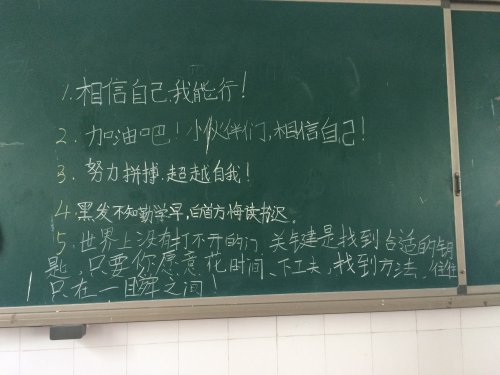 1.相信自己.我能行!
2.加油吧!小伙伴们,相信自己!
3.努力拼搏.超越自我!
4.黑发不知勤学早,白首方悔读书迟。
5.世界上没有打不开的门,关键是找到合适的钥
匙,只要你愿意花时间、下工夫,找到方法,往往
只在一瞬之间!